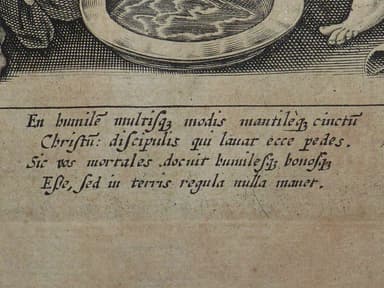 En humilē multisq₃ modis mantilèq₃ cinctū
Christū: discipulis qui lauat ecce pedes.
Sic vos mortales docuit humilesq₃ bonosq₃
Eße, sed in terris regula nulla manet.